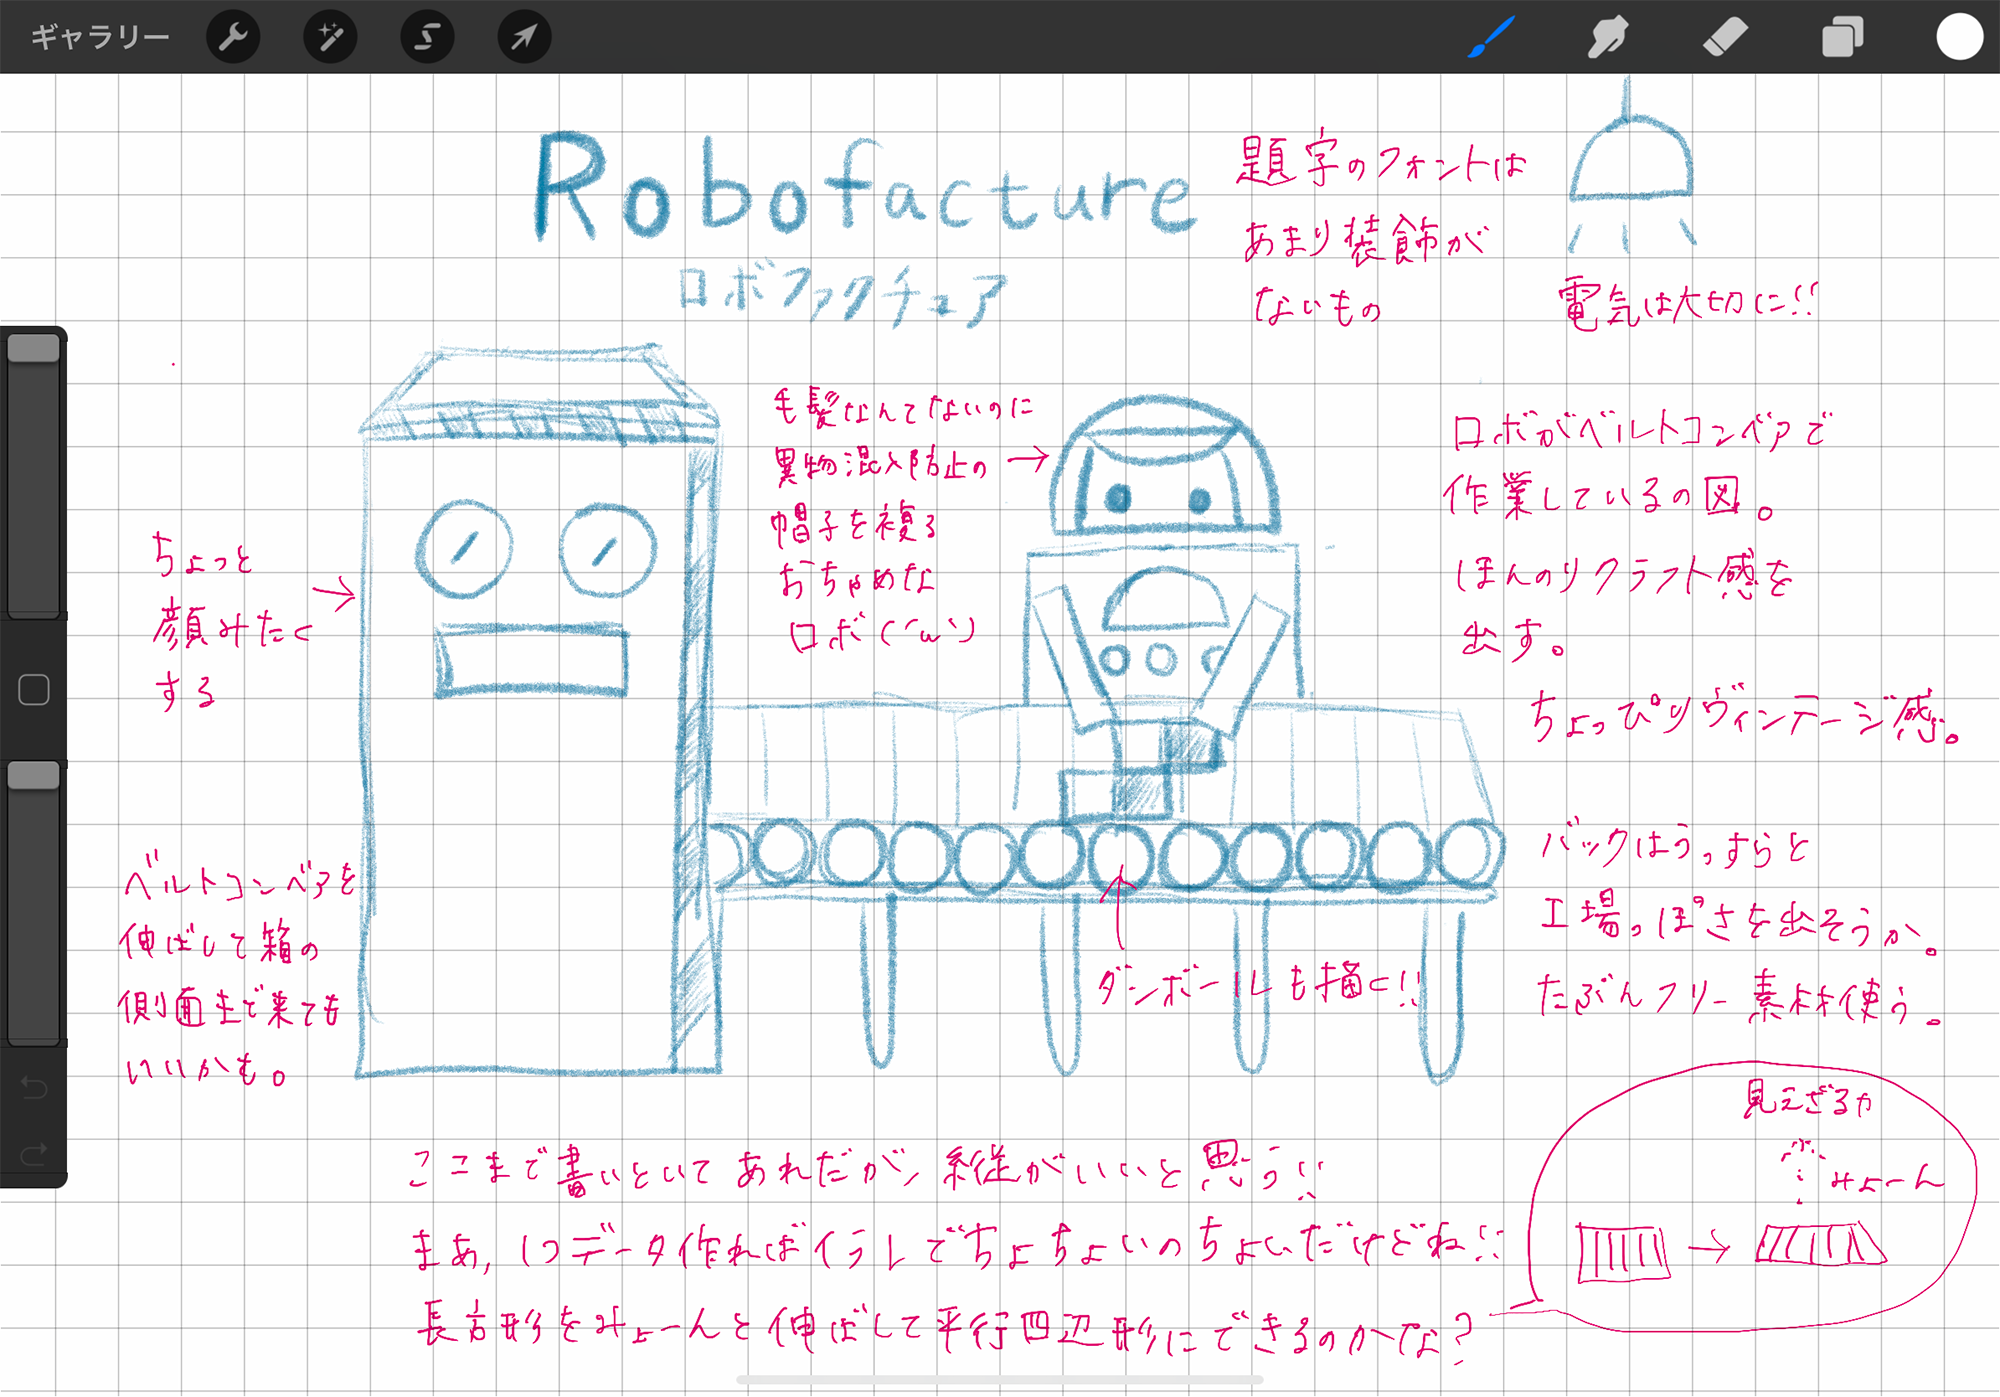 ギャラリー
Robofacture
ロボファクチュア
題字のフォントは
あまり装飾が
ないもの
電気は大切に!!
毛髪なんてないのに
異物混入防止の
帽子を複る
おちゃめな
ロボ(´ω`)
ロボがベルトコンベアで
作業しているの図。
ほんのりクラフト感を
出す。
ちょっぴりヴィンテージ感。
ちょっと
顔みたく
する
ベルトコンベアを
伸ばして箱の
側面まで来ても
いいかも。
ダンボールも描く!!
バックはうっすらと
工場っぽさを出そうか。
たぶんフリー素材使う。
ここまで書いといてあれだが、縦がいいと思う!!
まあ,1つデータ作ればイラレでちょちょいのちょいだけどね!!
長方形をみょーんと伸ばして平行四辺形にできるのかな?
見えざる力
みょーん